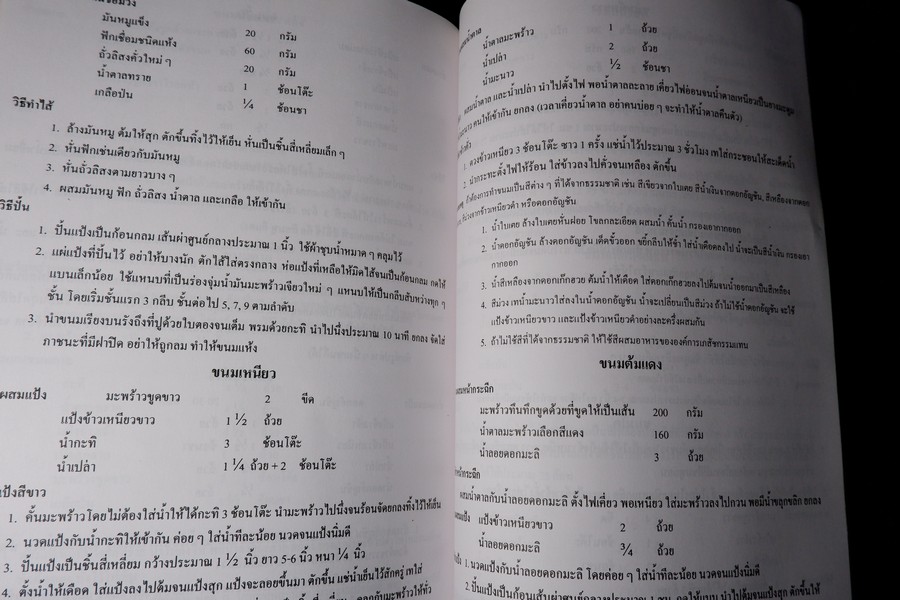 มันหมูแข็ง 20 กรัม
ฟักเชื่อมชนิดแห้ง 60 กรัม
ถั่วลิสงคั่วใหม่ ๆ 20 กรัม
น้ำตาลทราย 1 ช้อนโต๊ะ
เกลือป่น ¼ ช้อนชา
วิธีทำไส้
1. ล้างมันหมู ต้มให้สุก ตักขึ้นทิ้งไว้ให้เย็น หั่นเป็นชิ้นสี่เหลี่ยมเล็ก ๆ
2. หั่นฟักเช่นเดียวกับมันหมู
3. หั่นถั่วลิสงตามยาวบาง ๆ
4. ผสมมันหมู ฟัก ถั่วลิสง น้ำตาล และเกลือ ให้เข้ากัน
วิธีปั้น
1. ปั้นแป้งเป็นก้อนกลม เส้นผ่าศูนย์กลางประมาณ 1 นิ้ว ใช้ผ้าชุบน้ำหมาด ๆ คลุมไว้
2. แผ่แป้งที่ปั้นไว้ อย่าให้บางนัก ตักไส้ใส่ตรงกลาง ห่อแป้งที่เหลือให้มิดไส้จนเป็นก้อนกลม กดให้
แบนเล็กน้อย ใช้แหนบที่เป็นร่องจุ่มน้ำมันมะพร้าวเจียวใหม่ ๆ แหนบให้เป็นกลีบสับหว่างทุก ๆ
ชั้น โดยเริ่มชั้นแรก 3 กลีบ ชั้นต่อไป 5, 7, 9 ตามลำดับ
3. นำขนมเรียงบนรังถึงที่ปูด้วยใบตองจนเต็ม พรมด้วยกะทิ นำไปนึ่งประมาณ 10 นาที ยกลง จัดใส่
ภาชนะที่มีฝาปิด อย่าให้ถูกลม ทำให้ขนมแห้ง
ขนมเหนียว
ผสมแป้ง มะพร้าวขูดขาว 2 ขีด
แป้งข้าวเหนียวขาว 1 ½ ถ้วย
น้ำกะทิ 3 ช้อนโต๊ะ
น้ำเปล่า 1 ¼ ถ้วย + 2 ช้อนโต๊ะ
แป้งสีขาว
1. คั้นมะพร้าวโดยไม่ต้องใส่น้ำให้ได้กะทิ 3 ช้อนโต๊ะ นำมะพร้าวไปนึ่งจนร้อนจัดยกลงทิ้งไว้ให้เย็น
2. นวดแป้งกับน้ำกะทิให้เข้ากัน ค่อย ๆ ใส่น้ำทีละน้อย นวดจนแป้งนิ่มดี
3. ปั้นแป้งเป็นชิ้นสี่เหลี่ยม กว้างประมาณ 1 ½ นิ้ว ยาว 5-6 นิ้ว หนา ¼ นิ้ว
4. ตั้งน้ำให้เดือด ใส่แป้งลงไปต้มจนแป้งสุก แป้งจะลอยขึ้นมา ตักขึ้น แช่น้ำเย็นไว้สักครู่ เทใส่
น้ำตาลมะพร้าว 1 ถ้วย
น้ำเปล่า 2 ถ้วย
น้ำมะนาว ½ ช้อนชา
ผสมน้ำตาล และน้ำเปล่า นำไปตั้งไฟ พอน้ำตาลละลาย เคี่ยวไฟอ่อนจนน้ำตาลเหนียวเป็นยางมะตูม
คนให้เข้ากัน ยกลง (เวลาเคี่ยวน้ำตาล อย่าคนบ่อย ๆ จะทำให้น้ำตาลคืนตัว)
1. ตวงข้าวเหนียว 3 ช้อนโต๊ะ ซาว 1 ครั้ง แช่น้ำไว้ประมาณ 3 ชั่วโมง เทใส่กระชอนให้สะเด็ดน้ำ
2. นำกระทะตั้งไฟให้ร้อน ใส่ข้าวลงไปคั่วจนเหลือง ตักขึ้น
ถ้าต้องการทำขนมเป็นสีต่าง ๆ ที่ได้จากธรรมชาติ เช่น สีเขียวจากใบเตย สีน้ำเงินจากดอกอัญชัน, สีเหลืองจากดอก
สีม่วงจากข้าวเหนียวดำ หรือดอกอัญชัน
1. น้ำใบเตย ล้างใบเตยหั่นฝอย โขลกละเอียด ผสมน้ำ คั้นน้ำ กรองเอากากออก
2. น้ำดอกอัญชัน ล้างดอกอัญชัน เด็ดขั้วออก ขยี้กลีบให้ช้ำ ใส่น้ำเดือดลงไป น้ำจะเป็นสีน้ำเงิน กรองเอา
กากออก
3. น้ำสีเหลืองจากดอกเก๊กฮวย ต้มน้ำให้เดือด ใส่ดอกเก๊กฮวยลงไปต้มจนน้ำออกมาเป็นสีเหลือง
4. สีม่วง เทน้ำมะนาวใส่ลงในน้ำดอกอัญชัน น้ำจะเปลี่ยนเป็นสีม่วง ถ้าไม่ใช้น้ำดอกอัญชัน จะใช้
แป้งข้าวเหนียวขาว และแป้งข้าวเหนียวดำอย่างละครึ่งผสมกัน
5. ถ้าไม่ใช้สีที่ได้จากธรรมชาติ ให้ใช้สีผสมอาหารขององค์การเภสัชกรรมแทน
ขนมต้มแดง
ผสมหน้ากระฉีก
มะพร้าวทึนทึกขูดด้วยที่ขูดให้เป็นเส้น 200 กรัม
น้ำตาลมะพร้าวเลือกสีแดง 160 กรัม
น้ำลอยดอกมะลิ 3 ถ้วย
หน้ากระฉีก
ผสมน้ำตาลกับน้ำลอยดอกมะลิ ตั้งไฟเคี่ยว พอเหนียว ใส่มะพร้าวลงไปกวน พอมีน้ำขลุกขลิก ยกลง
ผสมแป้ง แป้งข้าวเหนียวขาว 2 ถ้วย
น้ำลอยดอกมะลิ ¾ ถ้วย
1. นวดแป้งกับน้ำลอยดอกมะลิ โดยค่อย ๆ ใส่น้ำทีละน้อย นวดจนแป้งนิ่มดี
2. ปั้นแป้งเป็นก้อนเส้นผ่าศูนย์กลางประมาณ 1 ซม. กดให้แบน นำไปต้มจนแป้งสุก ตักขึ้นใส่